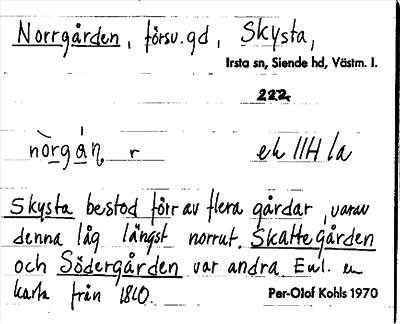 Norrgården, försv.gd, Skysta,
Irsta sn, Siende hd, Västm. l.
222
nòrgán r ek IIH la
Skysta bestod förr av flera gårdar, varav
denna låg längst norrut. Skattegården
och Södergården var andra. Enl. en
karta från 1810.
Per-Olof Kohls 1970